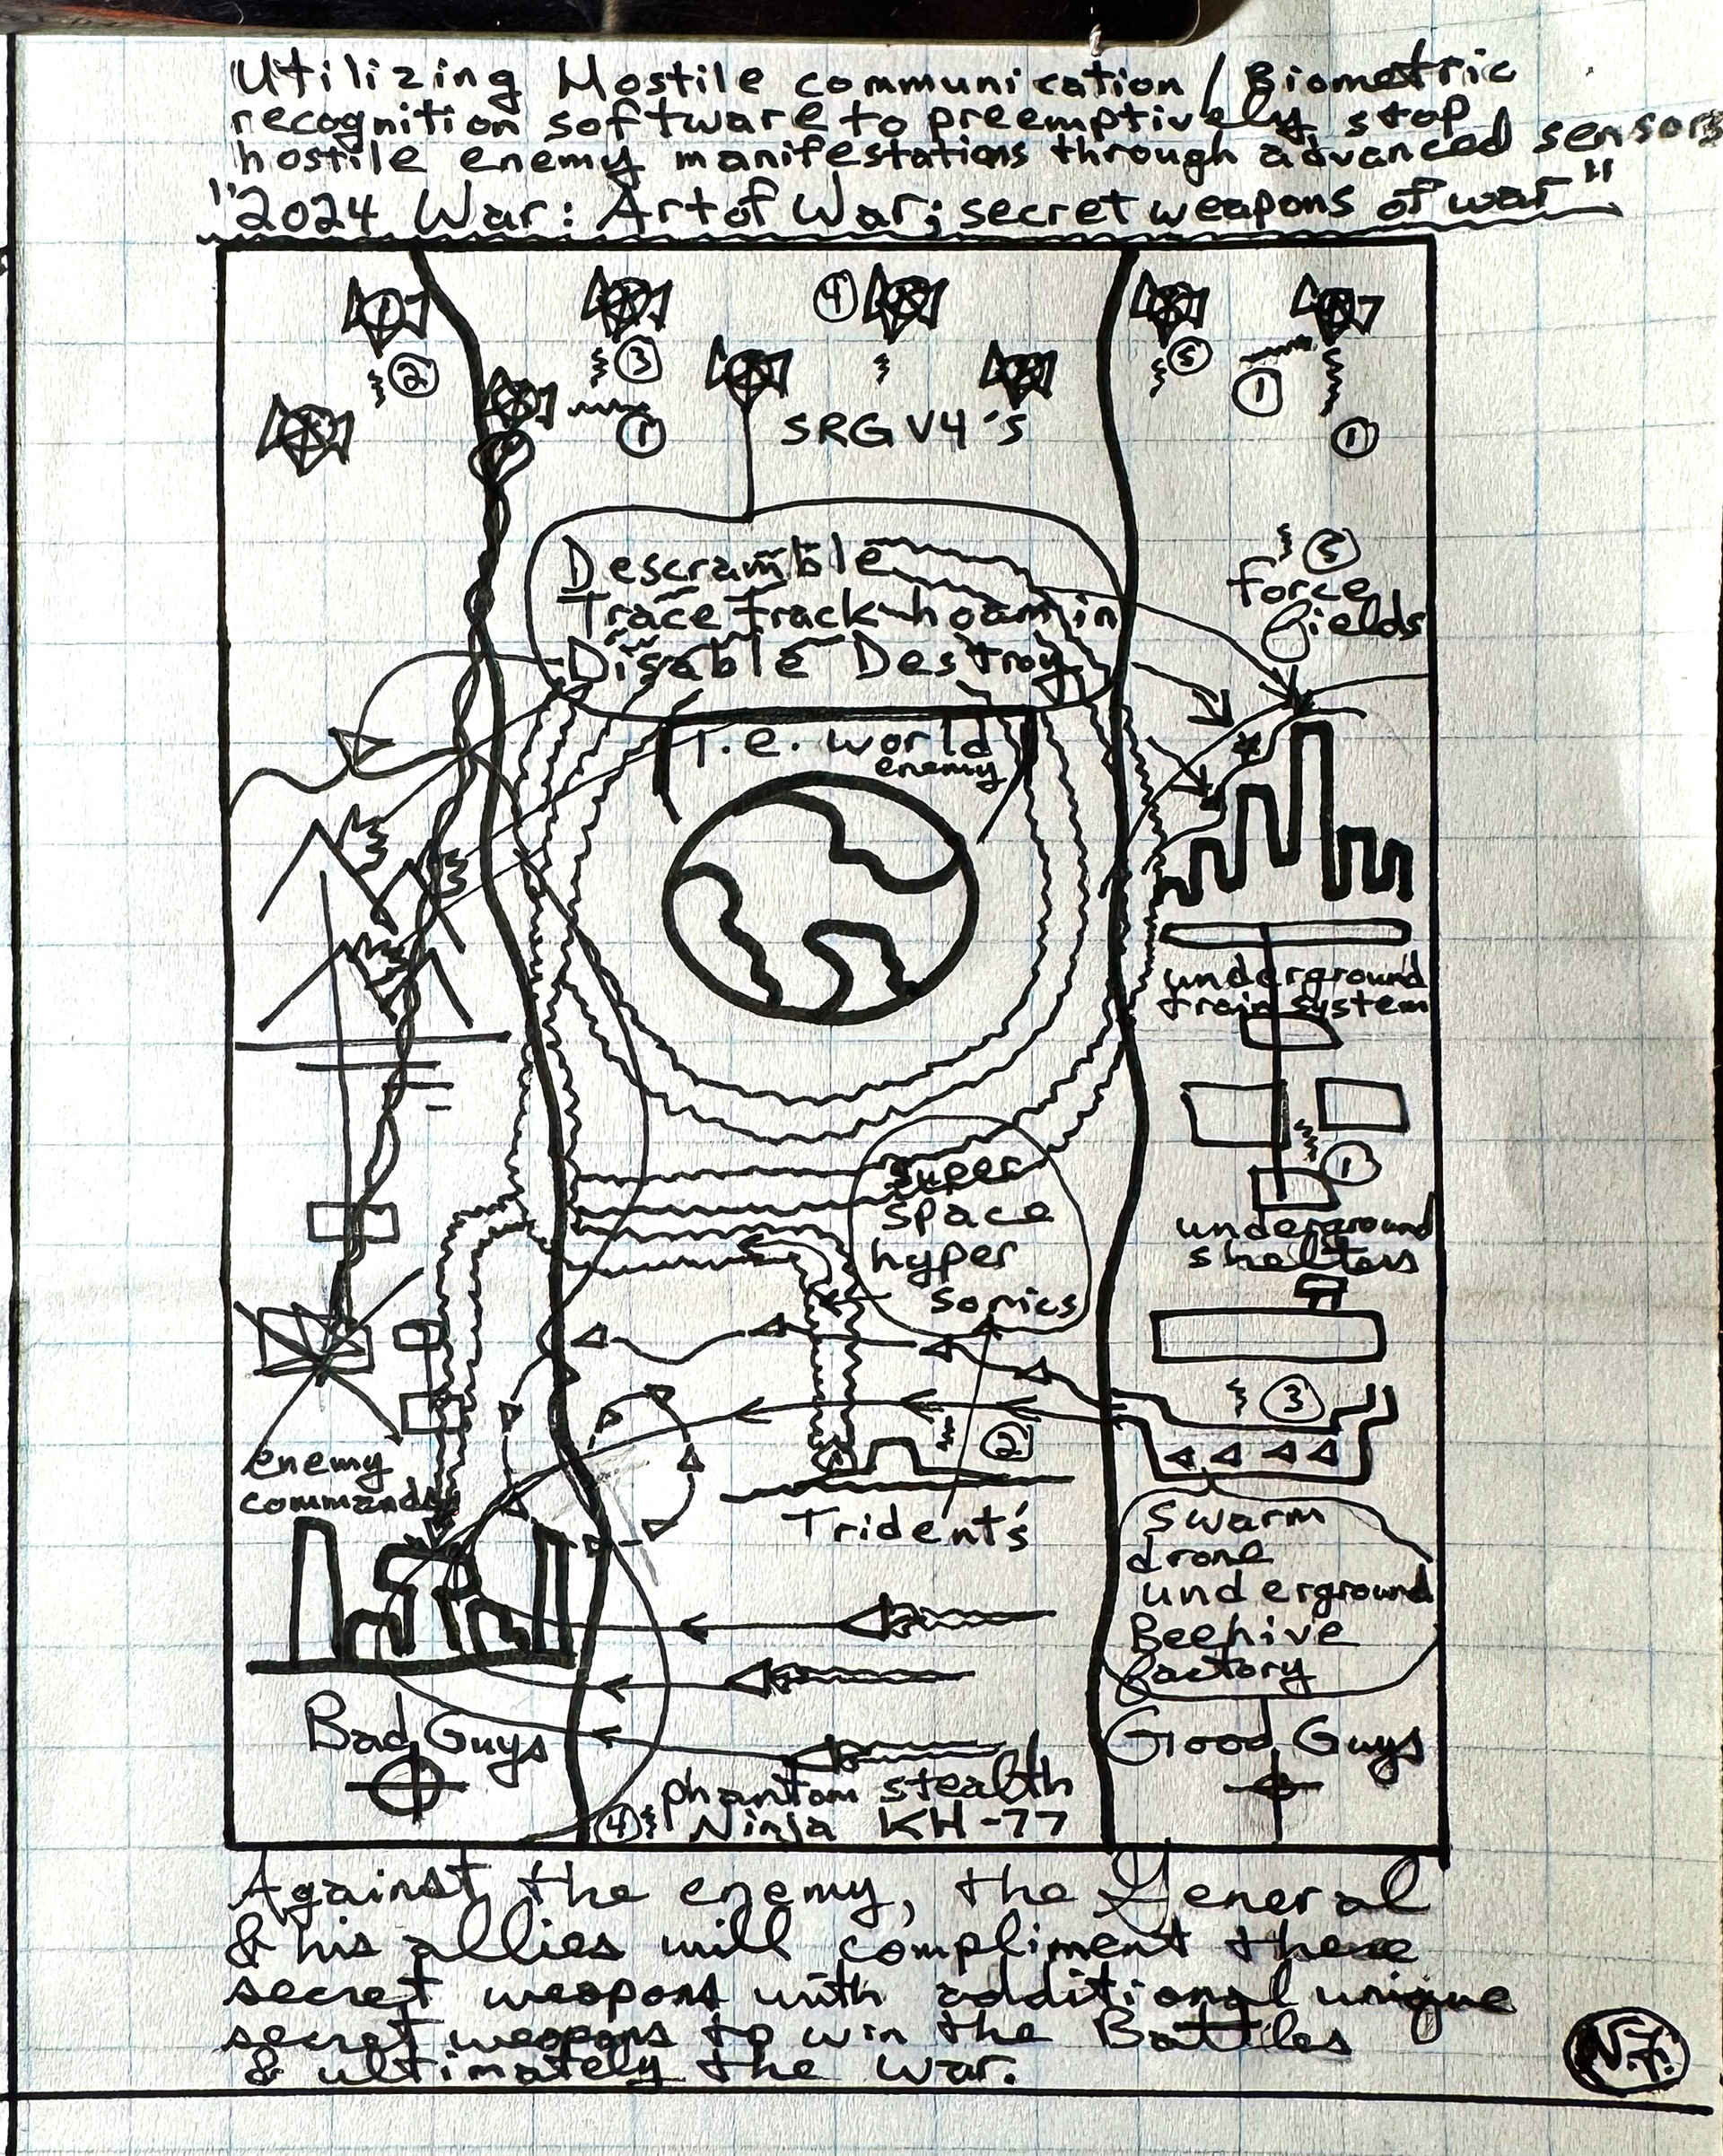 Utilizing Hostile communication / Biometric
recognition software to preemptively stop
hostile enemy manifestations through advanced sensors
"2024 War: Art of War; secret weapons of war"
4
2
3
5
1
1
1
SRGV4's
Descramble
Trace track hoam in
Disable Destroy
5
force
fields
I.e. world
enemy
underground
train system
1
underground
shelters
super
space
hyper
sonics
3
2
Trident's
enemy
command
swarm
drone
underground
Beehive
factory
Bad Guys
Good Guys
phantom stealth
4 Ninja KH-77
Against the enemy, the General
& his allies will compliment these
secret weapons with additional unique
secret weapons to win the Battles
& ultimately the war.
N.F.